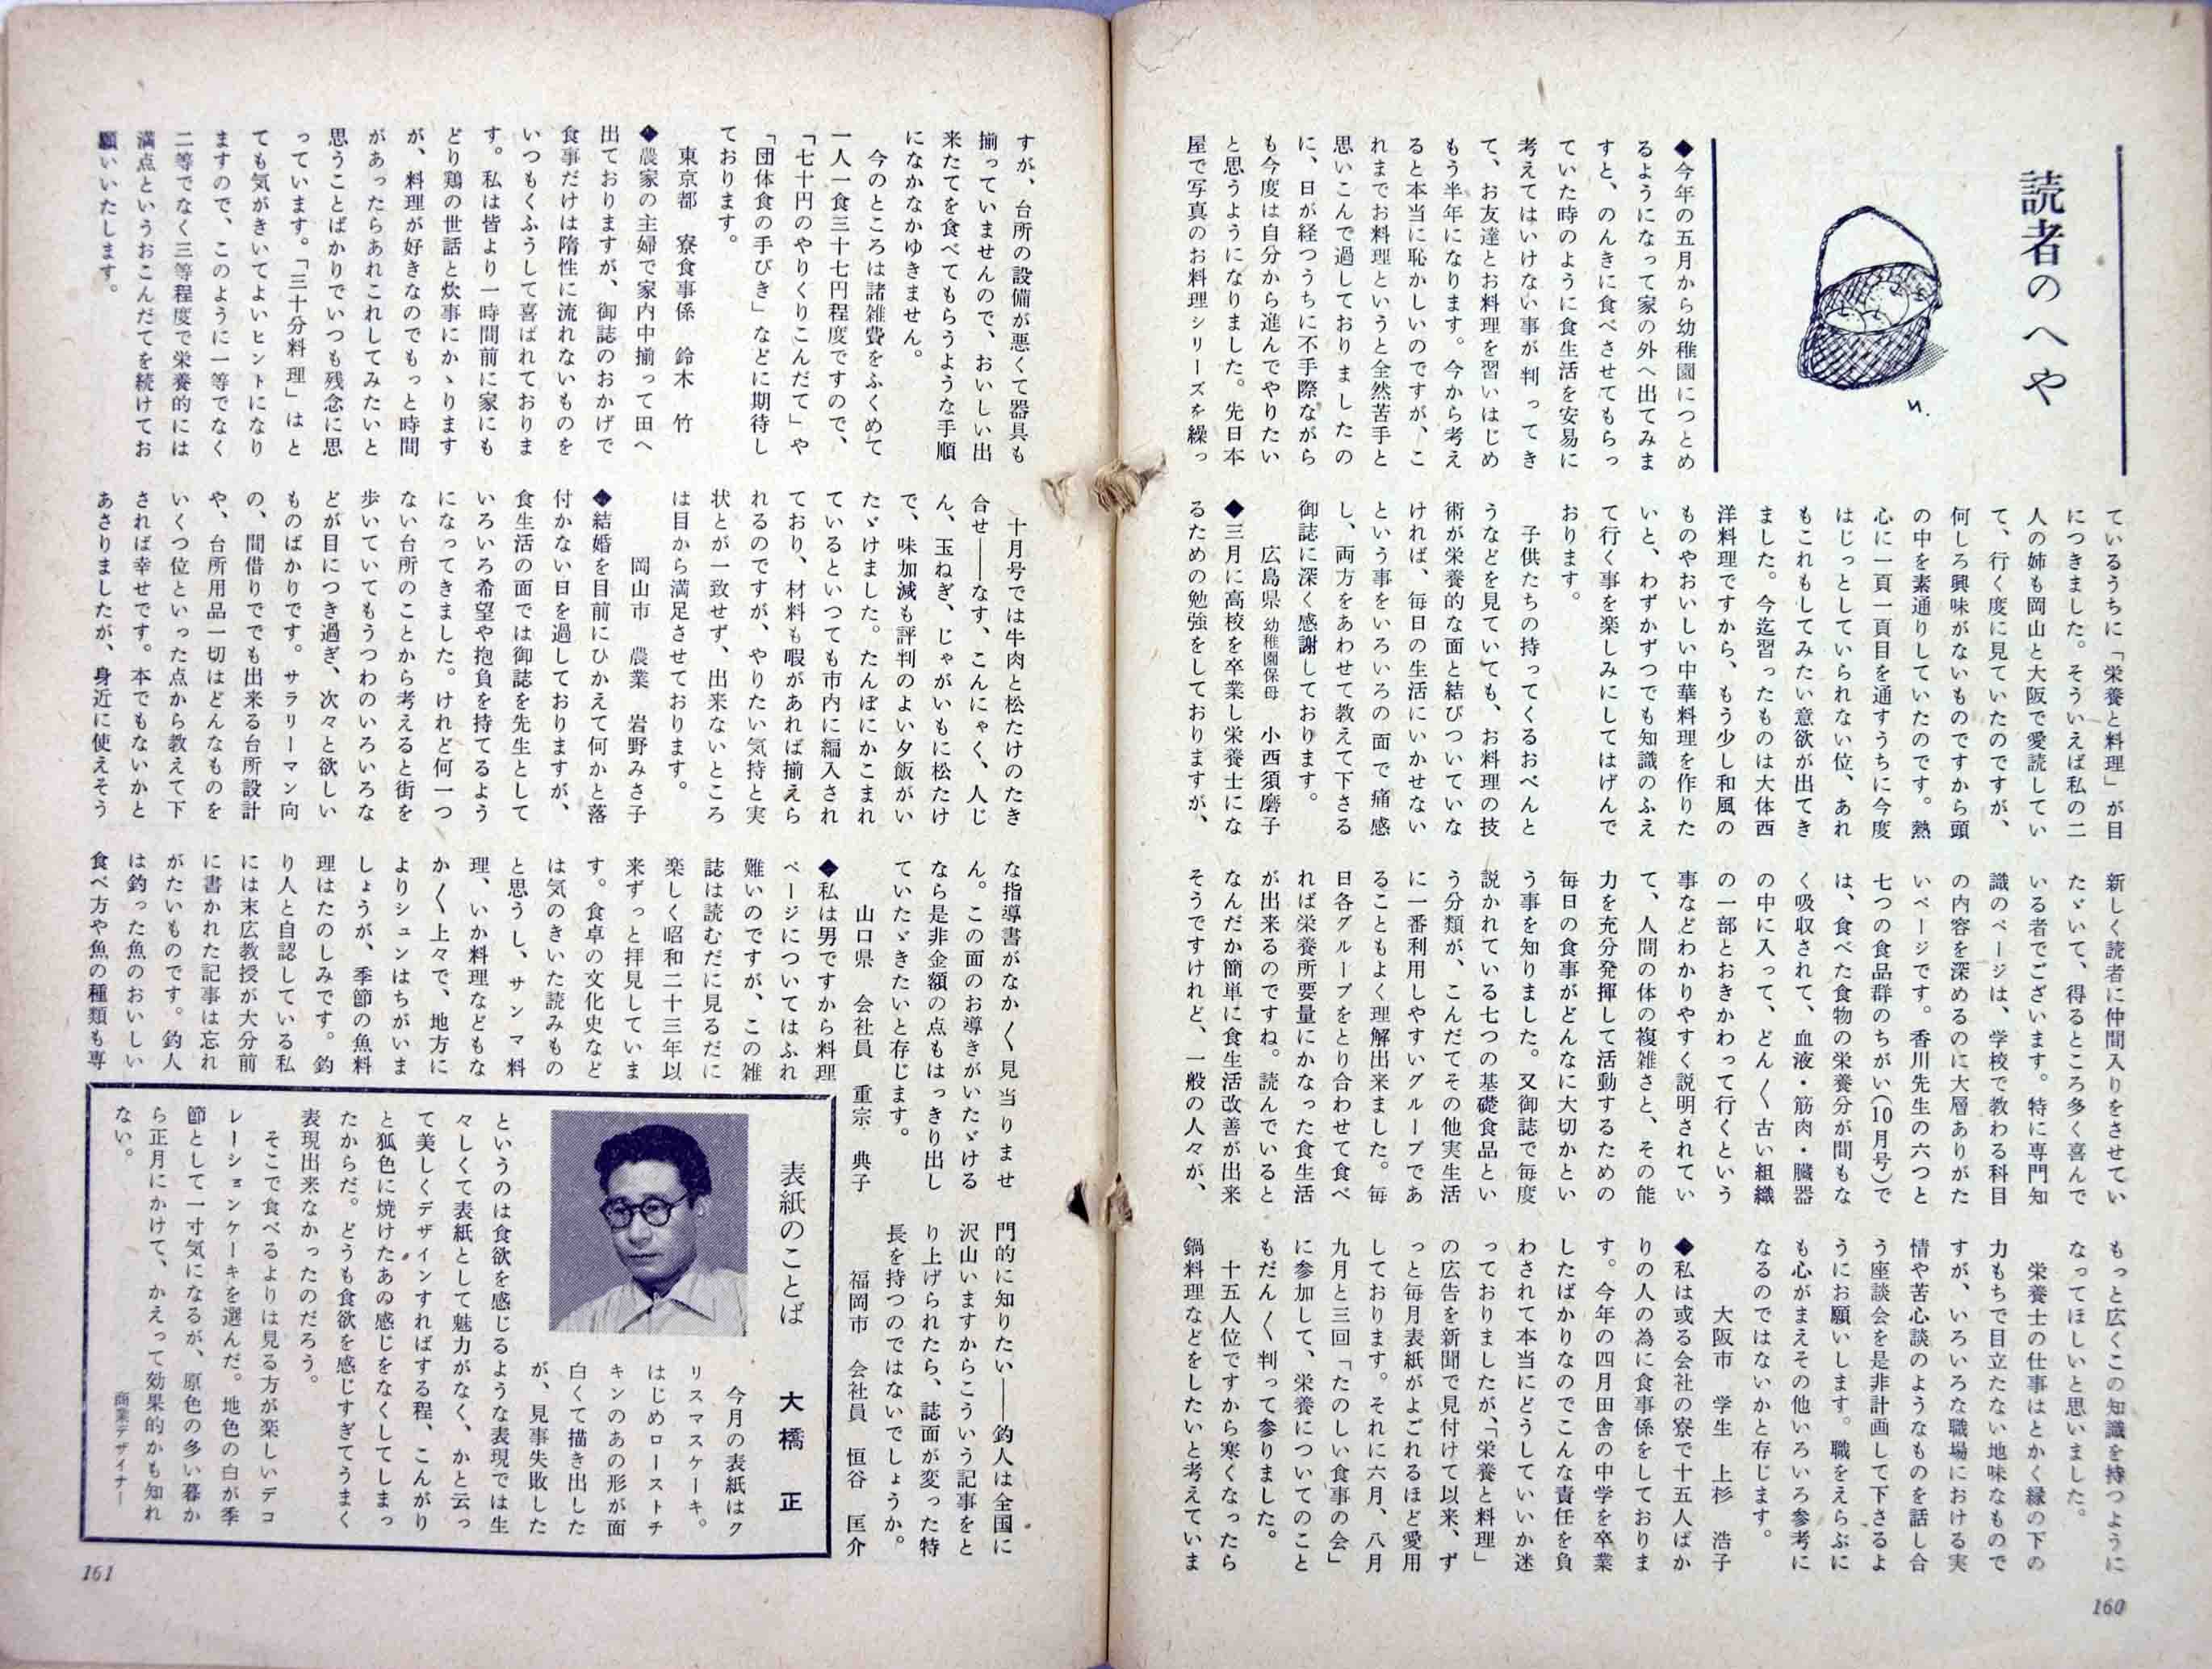 読者のへや
И.
◆今年の五月から幼稚園につとめ
るようになって家の外へ出てみま
すと、のんきに食べさせてもらっ
ていた時のように食生活を安易に
考えてはいけない事が判ってき
て、お友達とお料理を習いはじめ
もう半年になります。今から考え
ると本当に恥かしいのですが、こ
れまでお料理というと全然苦手と
思いこんで過しておりましたの
に、日が経つうちに不手際ながら
も今度は自分から進んでやりたい
と思うようになりました。先日本
屋で写真のお料理シリーズを繰っ
ているうちに「栄養と料理」が目
につきました。そういえば私の二
人の姉も岡山と大阪で愛読してい
て、行く度に見ていたのですが、
何しろ興味がないものですから頭
の中を素通りしていたのです。熱
心に一頁一頁目を通すうちに今度
はじっとしていられない位、あれ
もこれもしてみたい意欲が出てき
ました。今迄習ったものは大体西
洋料理ですから、もう少し和風の
ものやおいしい中華料理を作りた
いと、わずかずつでも知識のふえ
て行く事を楽しみにしてはげんで
おります。
子供たちの持ってくるおべんと
うなどを見ていても、お料理の技
術が栄養的な面と結びついていな
ければ、毎日の生活にいかせない
という事をいろいろの面で痛感
し、両方をあわせて教えて下さる
御誌に深く感謝しております。
広島県 幼稚園保母 小西須磨子
◆三月に高校を卒業し栄養士にな
るための勉強をしておりますが、
新しく読者に仲間入りをさせてい
たゞいて、得るところ多く喜んで
いる者でございます。特に専門知
識のページは、学校で教わる科目
の内容を深めるのに大層ありがた
いページです。香川先生の六つと
七つの食品群のちがい(10月号)で
は、食べた食物の栄養分が間もな
く吸収されて、血液・筋肉・臓器
の中に入って、どん〱古い組織
の一部とおきかわって行くという
事などわかりやすく説明されてい
て、人間の体の複雑さと、その能
力を充分発揮して活動するための
毎日の食事がどんなに大切かとい
う事を知りました。又御誌で毎度
説かれている七つの基礎食品とい
う分類が、こんだてその他実生活
に一番利用しやすいグループであ
ることもよく理解出来ました。毎
日各グループをとり合わせて食べ
れば栄養所要量にかなった食生活
が出来るのですね。読んでいると
なんだか簡単に食生活改善が出来
そうですけれど、一般の人々が、
もっと広くこの知識を持つように
なってほしいと思いました。
栄養士の仕事はとかく縁の下の
力もちで目立たない地味なもので
すが、いろいろな職場における実
情や苦心談のようなものを話し合
う座談会を是非計画して下さるよ
うにお願いします。職をえらぶに
も心がまえその他いろいろ参考に
なるのではないかと存じます。
大阪市 学生 上杉 浩子
◆私は或る会社の寮で十五人ばか
りの人の為に食事係をしておりま
す。今年の四月田舎の中学を卒業
したばかりなのでこんな責任を負
わされて本当にどうしていいか迷
っておりましたが、「栄養と料理」
の広告を新聞で見付けて以来、ず
っと毎月表紙がよごれるほど愛用
しております。それに六月、八月
九月と三回「たのしい食事の会」
に参加して、栄養についてのこと
もだん〱判って参りました。
十五人位ですから寒くなったら
鍋料理などをしたいと考えていま
160
すが、台所の設備が悪くて器具も
揃っていませんので、おいしい出
来たてを食べてもらうような手順
になかなかゆきません。
今のところは諸雑費をふくめて
一人一食三十七円程度ですので、
「七十円のやりくりこんだて」や
「団体食の手びき」などに期待し
ております。
東京都 寮食事係 鈴木 竹
◆農家の主婦で家内中揃って田へ
出ておりますが、御誌のおかげで
食事だけは隋性に流れないものを
いつもくふうして喜ばれておりま
す。私は皆より一時間前に家にも
どり鶏の世話と炊事にかゝります
が、料理が好きなのでもっと時間
があったらあれこれしてみたいと
思うことばかりでいつも残念に思
っています。「三十分料理」はと
ても気がきいてよいヒントになり
ますので、このように一等でなく
二等でなく三等程度で栄養的には
満点というおこんだてを続けてお
願いいたします。
十月号では牛肉と松たけのたき
合せ――なす、こんにゃく、人じ
ん、玉ねぎ、じゃがいもに松たけ
で、味加減も評判のよい夕飯がい
たゞけました。たんぼにかこまれ
ているといつても市内に編入され
ており、材料も暇があれば揃えら
れるのですが、やりたい気持と実
状とが一致せず、出来ないところ
は目から満足させております。
岡山市 農業 岩野みさ子
◆結婚を目前にひかえて何かと落
付かない日を過しておりますが、
食生活の面では御誌を先生として
いろいろ希望や抱負を持てるよう
になってきました。けれど何一つ
ない台所のことから考えると街を
歩いていてもうつわのいろいろな
どが目につき過ぎ、次々と欲しい
ものばかりです。サラリーマン向
の、間借りででも出来る台所設計
や、台所用品一切はどんなものを
いくつ位といった点から教えて下
されば幸せです。本でもないかと
あさりましたが、身近に使えそう
な指導書がなか〱見当りませ
ん。この面のお導きがいたゞける
なら是非金額の点もはっきり出し
ていたゞきたいと存じます。
山口県 会社員 重宗 典子
◆私は男ですから料理
ページについてはふれ
難いのですが、この雑
誌は読むだに見るだに
楽しく昭和二十三年以
来ずっと拝見していま
す。食卓の文化史など
は気のきいた読みもの
と思うし、サンマ料
理、いか料理などもな
か〱上々で、地方に
よりシュンはちがいま
しょうが、季節の魚料
理はたのしみです。釣
り人と自認している私
には末広教授が大分前
に書かれた記事は忘れ
がたいものです。釣人
は釣った魚のおいしい
食べ方や魚の種類も専
門的に知りたい――釣人は全国に
沢山いますからこういう記事をと
り上げられたら、誌面が変った特
長を持つのではないでしょうか。
福岡市 会社員 恒谷 匡介
表紙のことば 大橋 正
今月の表紙はク
リスマスケーキ。
はじめローストチ
キンのあの形が面
白くて描き出した
が、見事失敗した
というのは食欲を感じるような表現では生
々しくて表紙として魅力がなく、かと云っ
て美しくデザインすればする程、こんがり
と狐色に焼けたあの感じをなくしてしまっ
たからだ。どうも食欲を感じすぎてうまく
表現出来なかったのだろう。
そこで食べるよりは見る方が楽しいデコ
レーションケーキを選んだ。地色の白が季
節として一寸気になるが、原色の多い暮か
ら正月にかけて、かえって効果的かも知れ
ない。
商業デザイナー
161